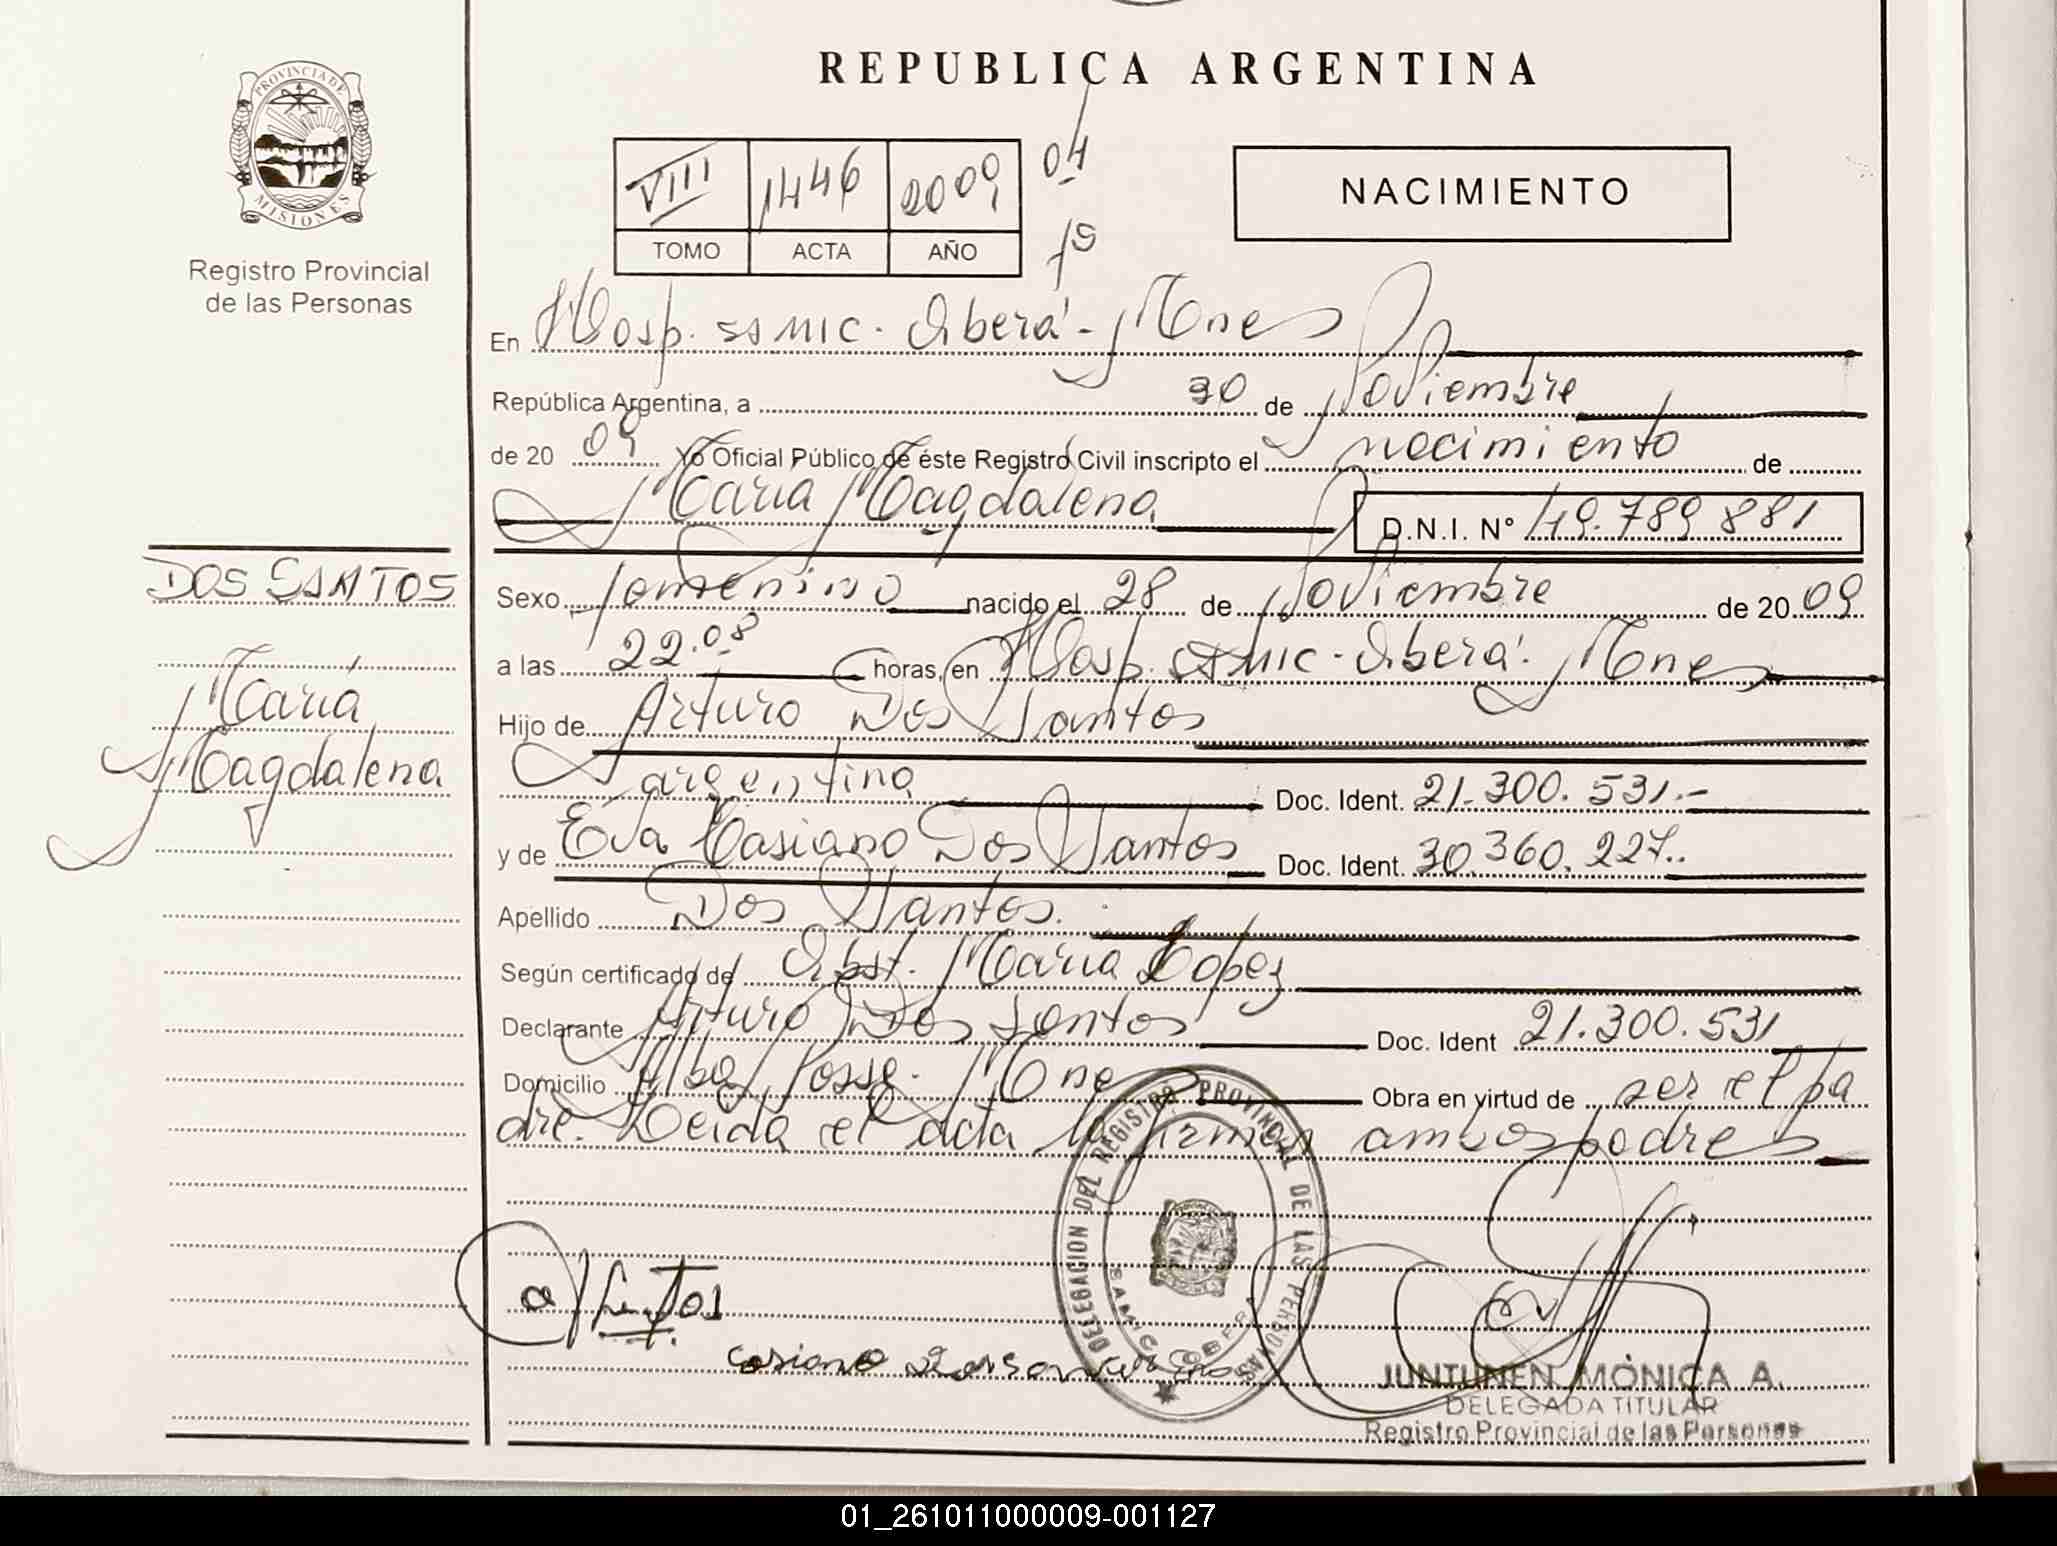 REPUBLICA ARGENTINA
PROVINCIA DE MISIONES
Registro Provincial
de las Personas
VIII 1446 2009 04
TOMO ACTA AÑO
NACIMIENTO
En Hosp. SAMIC. Oberá - Mnes
República Argentina, a 30 de Noviembre
de 20 09 Yo Oficial Público de éste Registro Civil inscripto el nacimiento de
María Magdalena D.N.I. Nº 49.789.881
DOS SANTOS
María
Magdalena
Sexo femenino nacido el 28 de Noviembre de 20 09
a las 22.08 horas, en Hosp. SAMIC - Oberá. Mnes
Hijo de Arturo Dos Santos
argentina Doc. Ident. 21.300.531.-
y de Eva Casiano Dos Santos Doc. Ident. 30.360.227..
Apellido Dos Santos.
Según certificado de Obst. María Lopez
Declarante Arturo Dos Santos Doc. Ident 21.300.531
Domicilio Alba Posse. Mnes Obra en virtud de ser el pa
dre. Leída el acta la firman ambos padres
DELEGACION DEL REGISTRO PROVINCIAL DE LAS PERSONAS
SAMIC OBERA
JUNTUNEN MÓNICA A.
DELEGADA TITULAR
Registro Provincial de las Personas
01_261011000009-001127